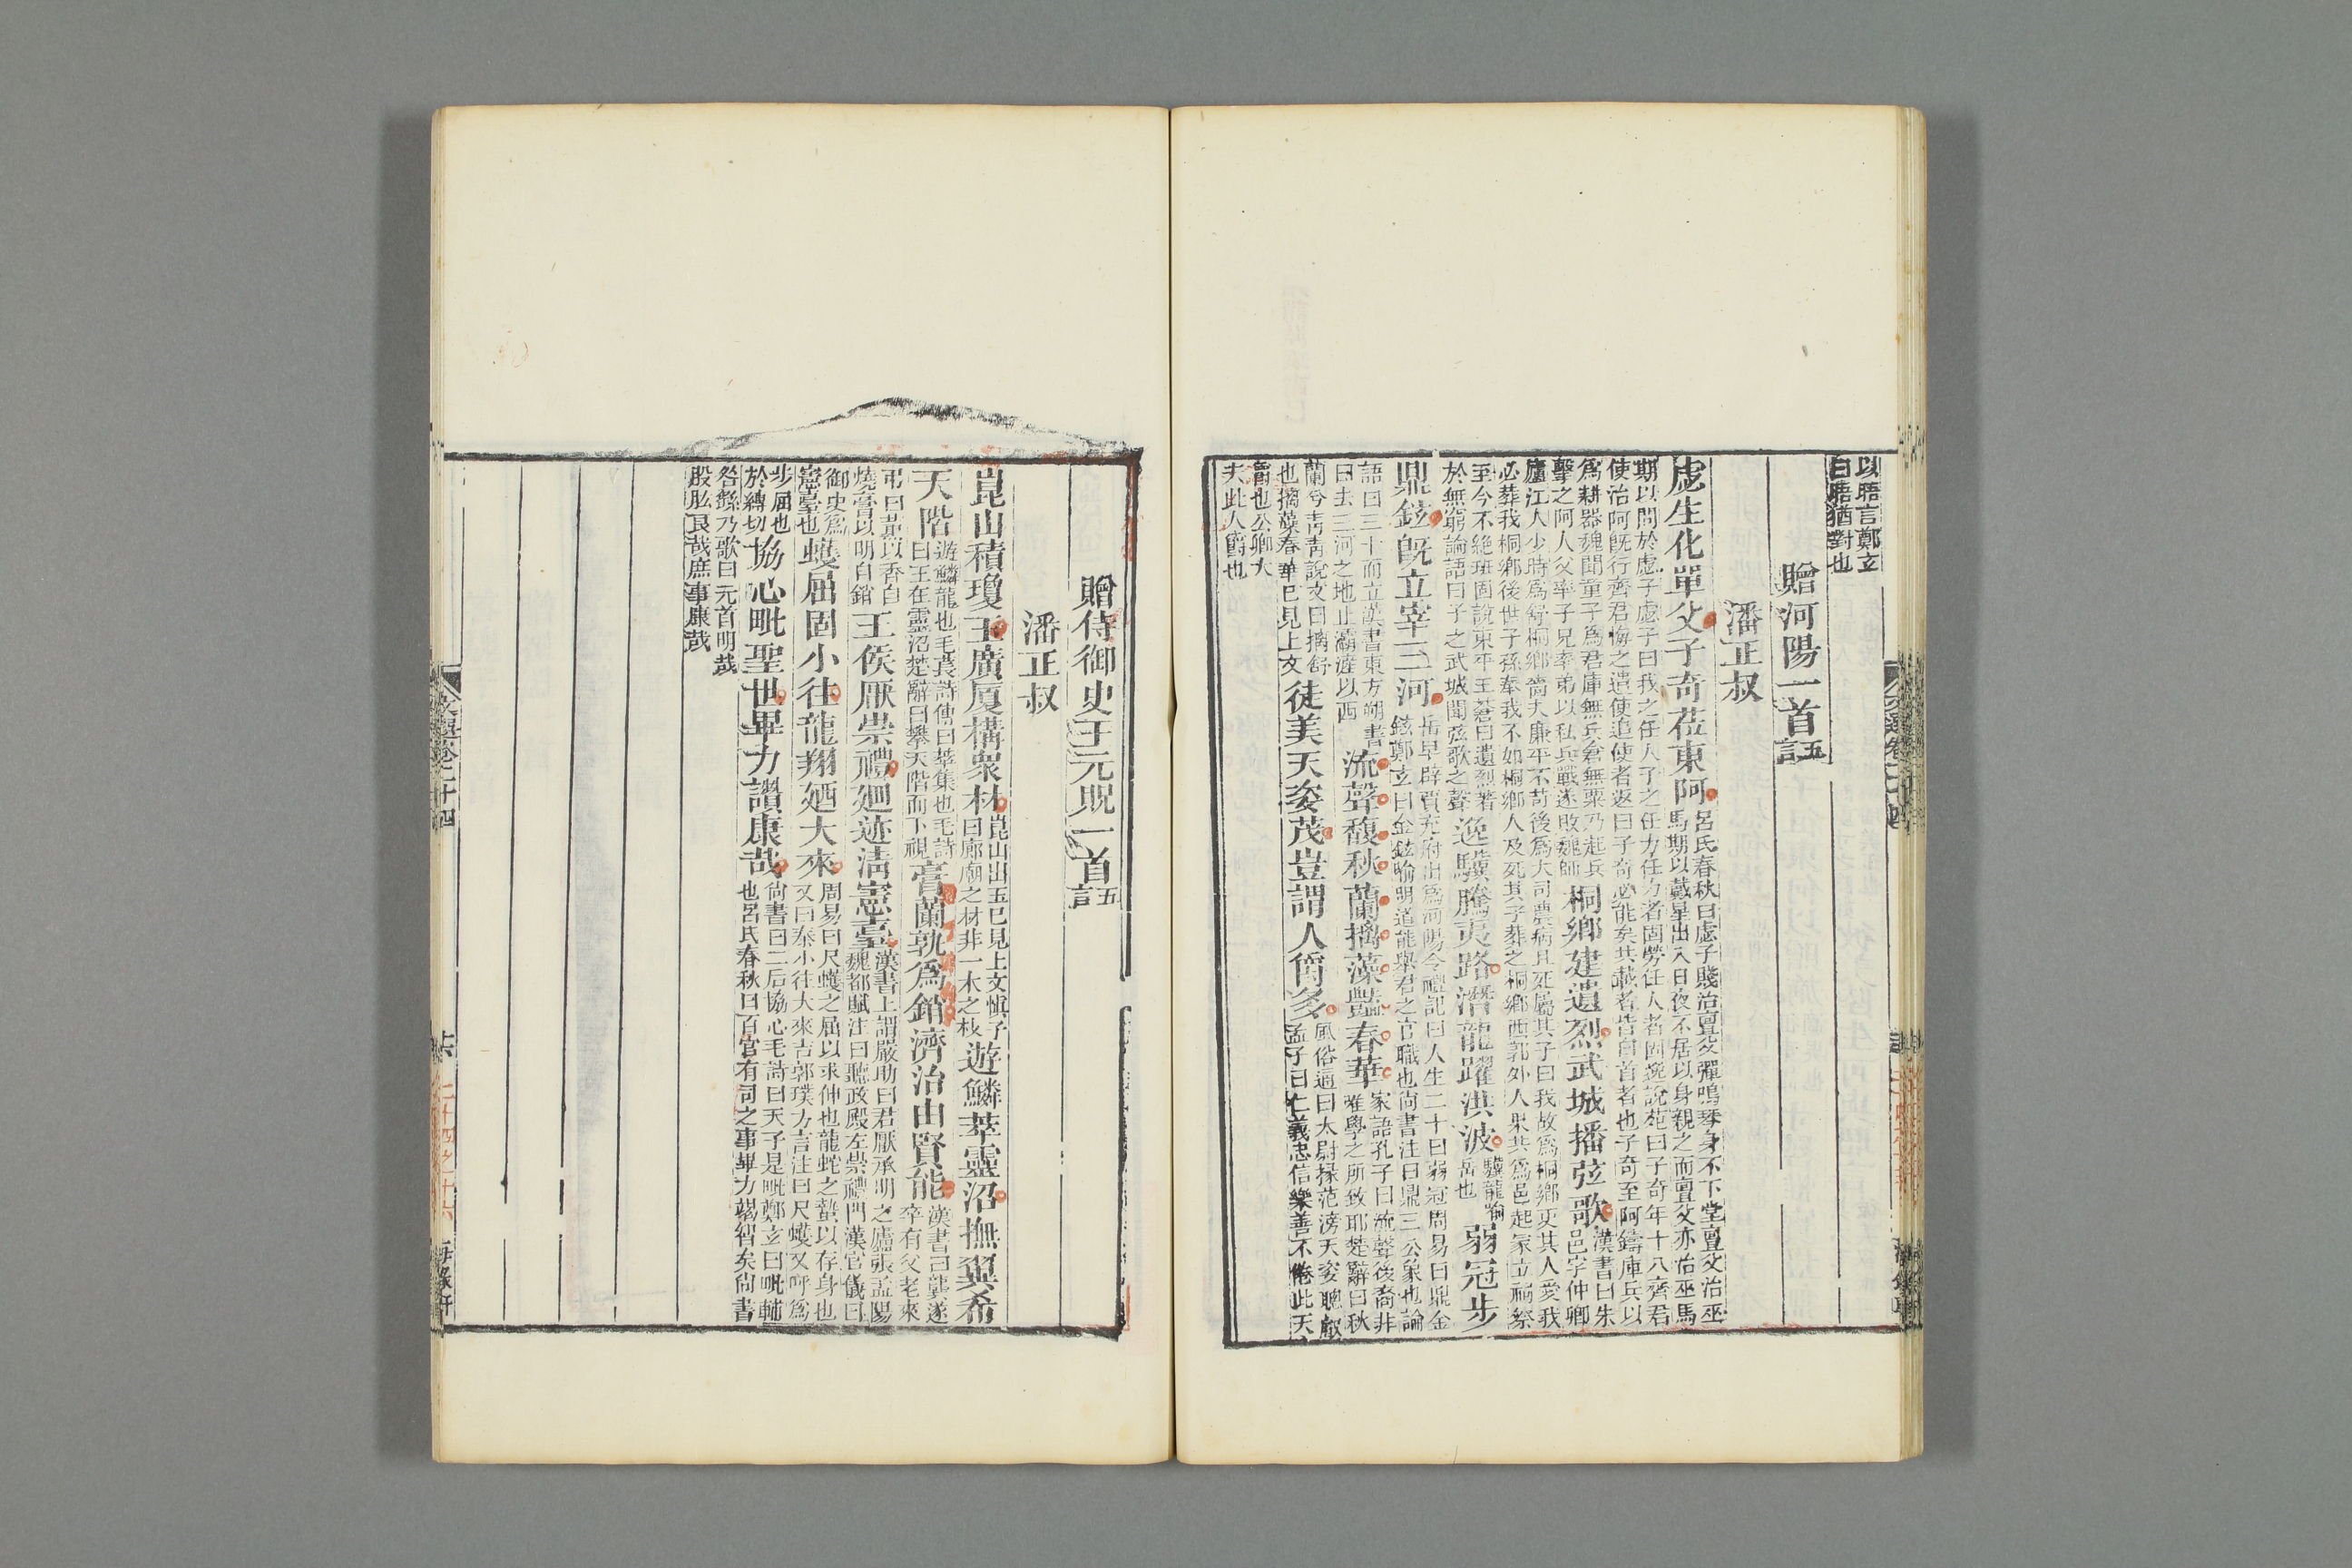 以晤言鄭玄
曰晤猶對也
贈河陽一首
五言
潘正叔
虙生化單父子奇莅東阿
呂氏春秋曰虙子賤治亶父彈鳴琴身不下堂亶父治巫
馬期以戴星出入日夜不居以身親之而亶父亦治巫馬
期以問於虙子虙子曰我之任人子之任力任力者固勞任人者固逸說苑曰子奇年十八齊君
使治阿旣行齊君悔之遣使追使者返曰子奇必能矣共載者皆白首者也子奇至阿鑄庫兵以
爲耕器魏聞童子爲君庫無兵倉無粟乃起兵
擊之阿人父率子兄率弟以私兵戰遂敗魏師
桐鄉建遺烈武城播弦歌
漢書曰朱
邑字仲卿
廬江人少時爲舒桐鄉嗇夫廉平不苛後爲大司農病且死屬其子曰我故爲桐鄉吏其人愛我
必葬我桐鄉後世子孫奉我不如桐鄉人及死其子葬之桐鄉西郭外人果共爲邑起冢立祠祭
至今不絕班固說東平王蒼曰遺烈著
於無窮論語曰子之武城聞弦歌之聲
逸驥騰夷路潛龍躍洪波
驥龍喻
岳也
弱冠步
鼎鉉旣立宰三河
岳早辟賈充府出爲河陽令禮記曰人生二十曰弱冠周易曰鼎金
鉉鄭玄曰金鉉喻明道能舉君之官職也尙書注曰鼎三公象也論
語曰三十而立漢書東方朔書
曰去三河之地止灞滻以西
流聲馥秋蘭摛藻豔春華
家語孔子曰流聲後裔非
唯學之所致耶楚辭曰秋
蘭兮靑靑說文曰摛舒
也摛藻春華已見上文
徒美天姿茂豈謂人爵多
風俗通曰太尉掾范滂天姿聰叡
孟子曰仁義忠信樂善不倦此天
爵也公卿大
夫此人爵也
贈侍御史王元貺一首
五言
潘正叔
崑山積瓊玉廣厦構衆材
崑山出玉已見上文愼子
曰廊廟之材非一木之枝
遊鱗萃靈沼撫翼希
天階
遊鱗龍也毛萇詩傳曰萃集也毛詩
曰王在靈沼楚辭曰攀天階而下視
膏蘭孰爲銷濟治由賢能
漢書曰龔遂
卒有父老來
弔曰薰以香自
燒膏以明自銷
王侯厭崇禮廻迹淸憲臺
漢書上謂嚴助曰君厭承明之廬張孟陽
魏都賦注曰聽政殿左崇禮門漢官儀曰
御史爲
憲臺也
蠖屈固小往龍翔廼大來
周易曰尺蠖之屈以求伸也龍蛇之蟄以存身也
又曰泰小往大來吉郭璞方言注曰尺蠖又呼爲
步屈也
於縛切
協心毗聖世畢力讚康哉
尙書曰二后協心毛詩曰天子是毗鄭玄曰毗輔
也呂氏春秋曰百官有司之事畢力竭智矣尙書
咎繇乃歌曰元首明哉
股肱良哉庶事康哉
文選卷二十四
共
二十四之十六
海錄軒